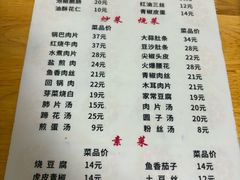 油酥腰肠 20元 红油三丝 10元
油酥花仁 10元 青椒皮蛋 14元
炒菜 烧菜
菜品价 菜品价
锅巴肉片 37元 大蒜肚条 44元
红烧牛肉 32元 豆沙肚条 34元
水煮肉片 28元 尖椒头皮 22元
盐煎肉 24元 火爆腰花 28元
鱼香肉丝 21元 青椒肉丝 21元
回锅肉 22元 木耳肉片 21元
芽菜烧白 21元 家常豆腐 19元
肺片汤 25元 肉片汤 20元
蹄花汤 25元 圆子汤 20元
煎蛋汤 9元 粉丝汤 8元
素菜
菜品价 菜品价
烧豆腐 14元 鱼香茄子 14元
虎皮青椒 14元 土豆丝 12元